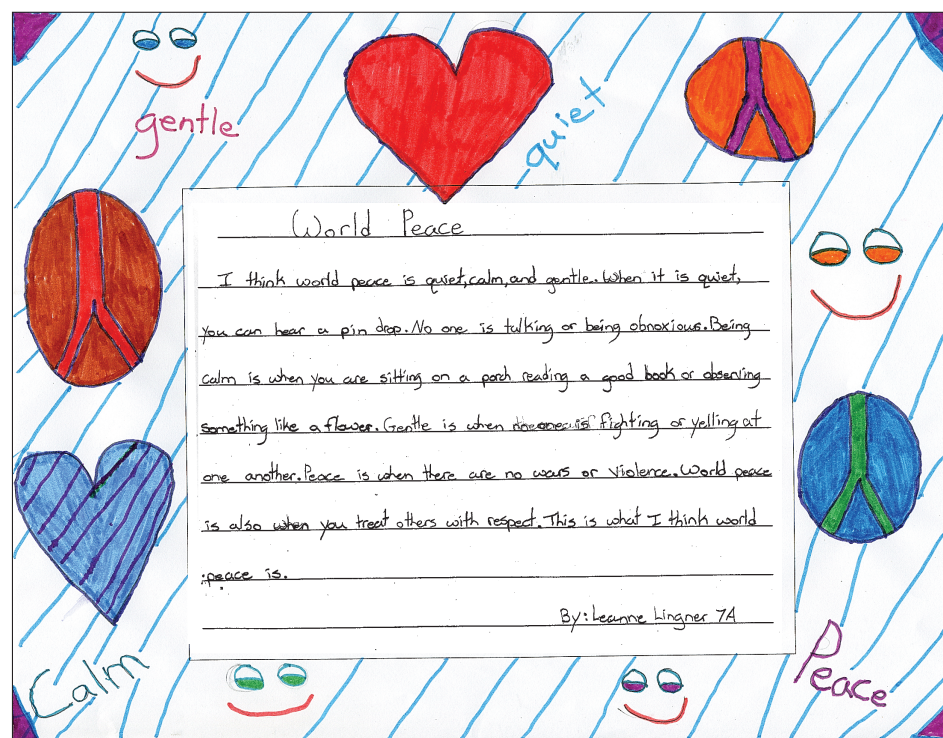 gentle
quiet
World Peace
I think world peace is quiet,calm,and gentle. When it is quiet,
you can hear a pin drop. No one is talking or being obnoxious. Being
calm is when you are sitting on a porch reading a good book or observing
something like a flower. Gentle is when no one is fighting or yelling at
one another. Peace is when there are no wars or violence. World peace
is also when you treat others with respect. This is what I think world
peace is.
By: Leanne Lingner 7A
Calm
Peace